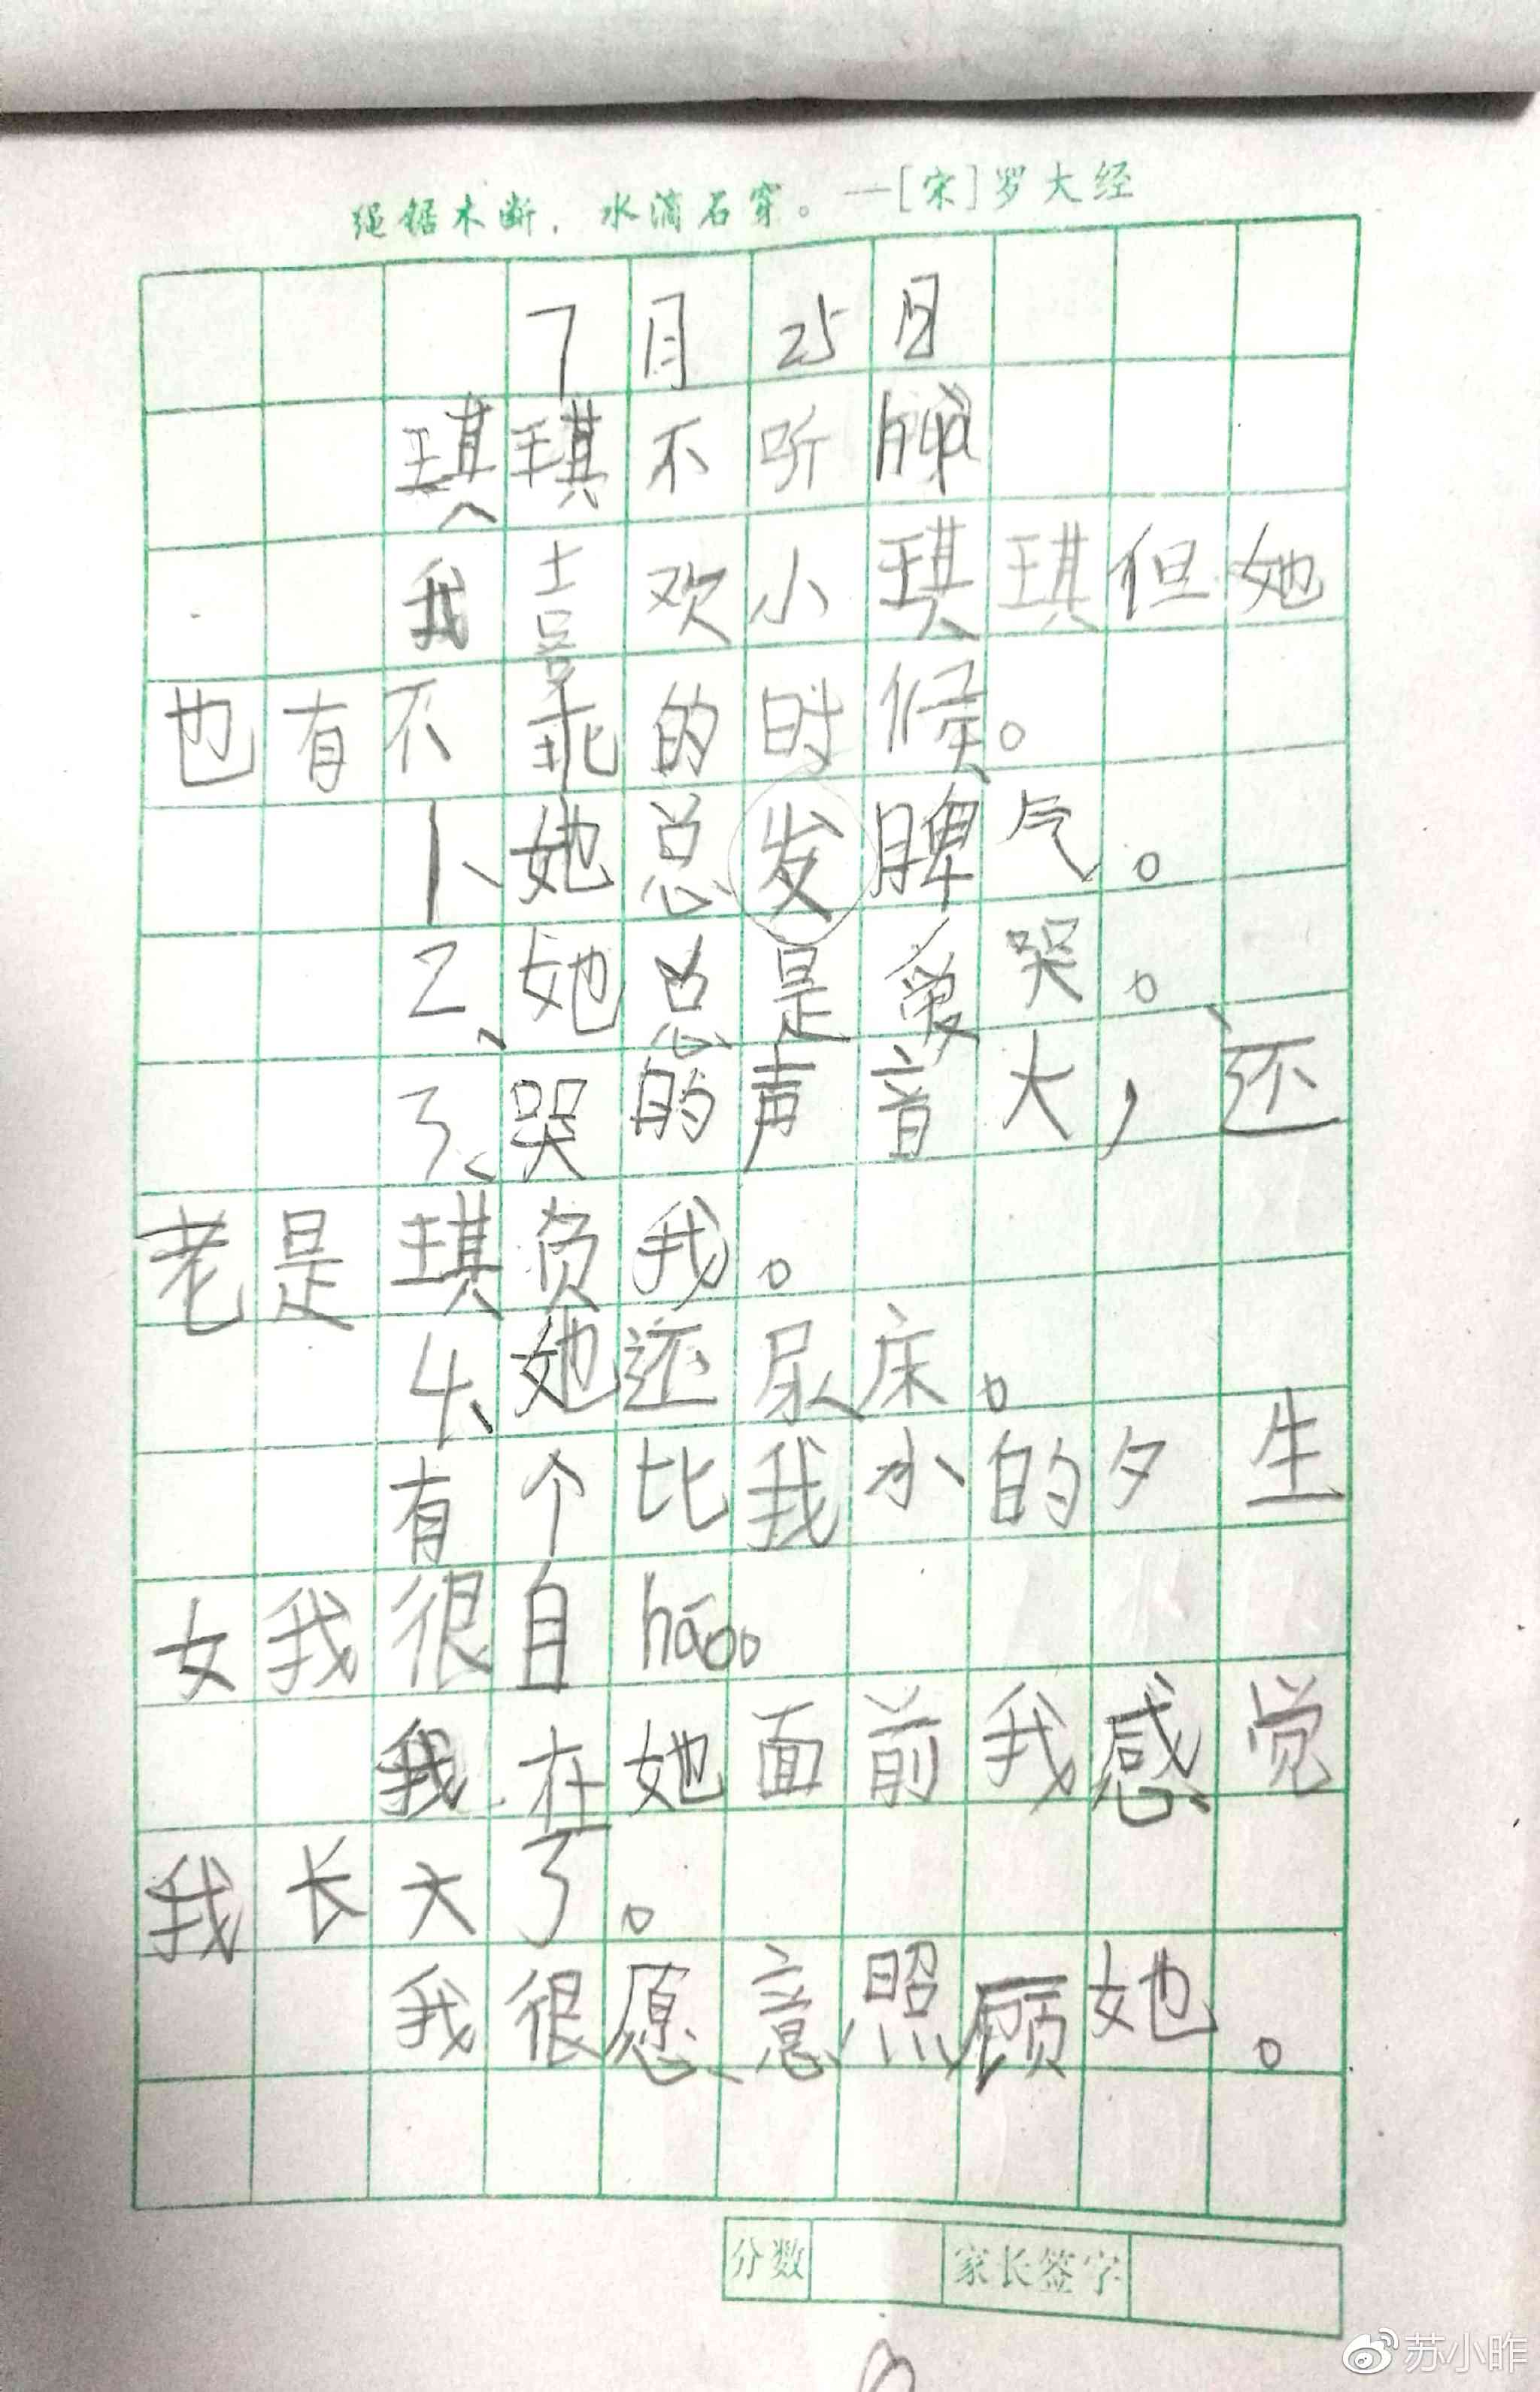 绳锯木断，水滴石穿。—[宋]罗大经
7月25日
琪琪不听
我喜欢小琪琪但她
也有不乖的时候。
1、她总发脾气。
2、她总是爱哭。
3、哭的声音大，还
老是琪负我。
4、她还尿床。
有个比我小的夕生
女我很自háo。
我在她面前我感觉
我长大了。
我很愿意照顾她。
分数 家长签字
苏小昨